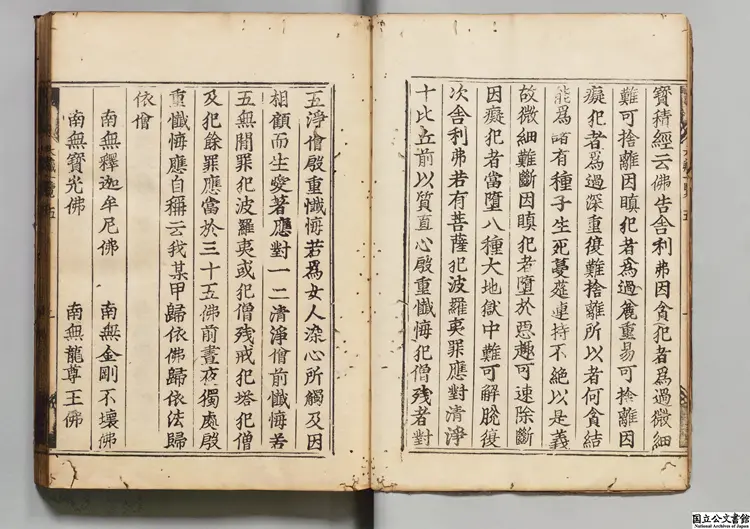 寳積經云佛告舍利弗因貪犯者爲過微細
難可捨離因瞋犯者爲過麁重易可捨離因
癡犯者爲過深重復難捨離所以者何貪結
能爲諸有種子生死蔓莚連持不絶以是義
故微細難斷因瞋犯者墮於惡趣可速除斷
因癡犯者當墮八種大地獄中難可解脫復
次舍利弗若有菩薩犯波羅夷罪應對清淨
十比丘前以質直心殷重懺悔犯僧残者對
五淨僧殷重懺悔若爲女人染心所觸及因
相顧而生愛著應對一二清淨僧前懺悔若
五無間罪犯波羅夷或犯僧残戒犯塔犯僧
及犯餘罪應當於三十五佛前晝夜獨處殷
重懺悔應自稱云我某甲歸依佛歸依法歸
依僧
南無釋迦牟尼佛 南無金剛不壞佛
南無寳光佛 南無龍尊王佛
国立公文書館
National Archives of Japan